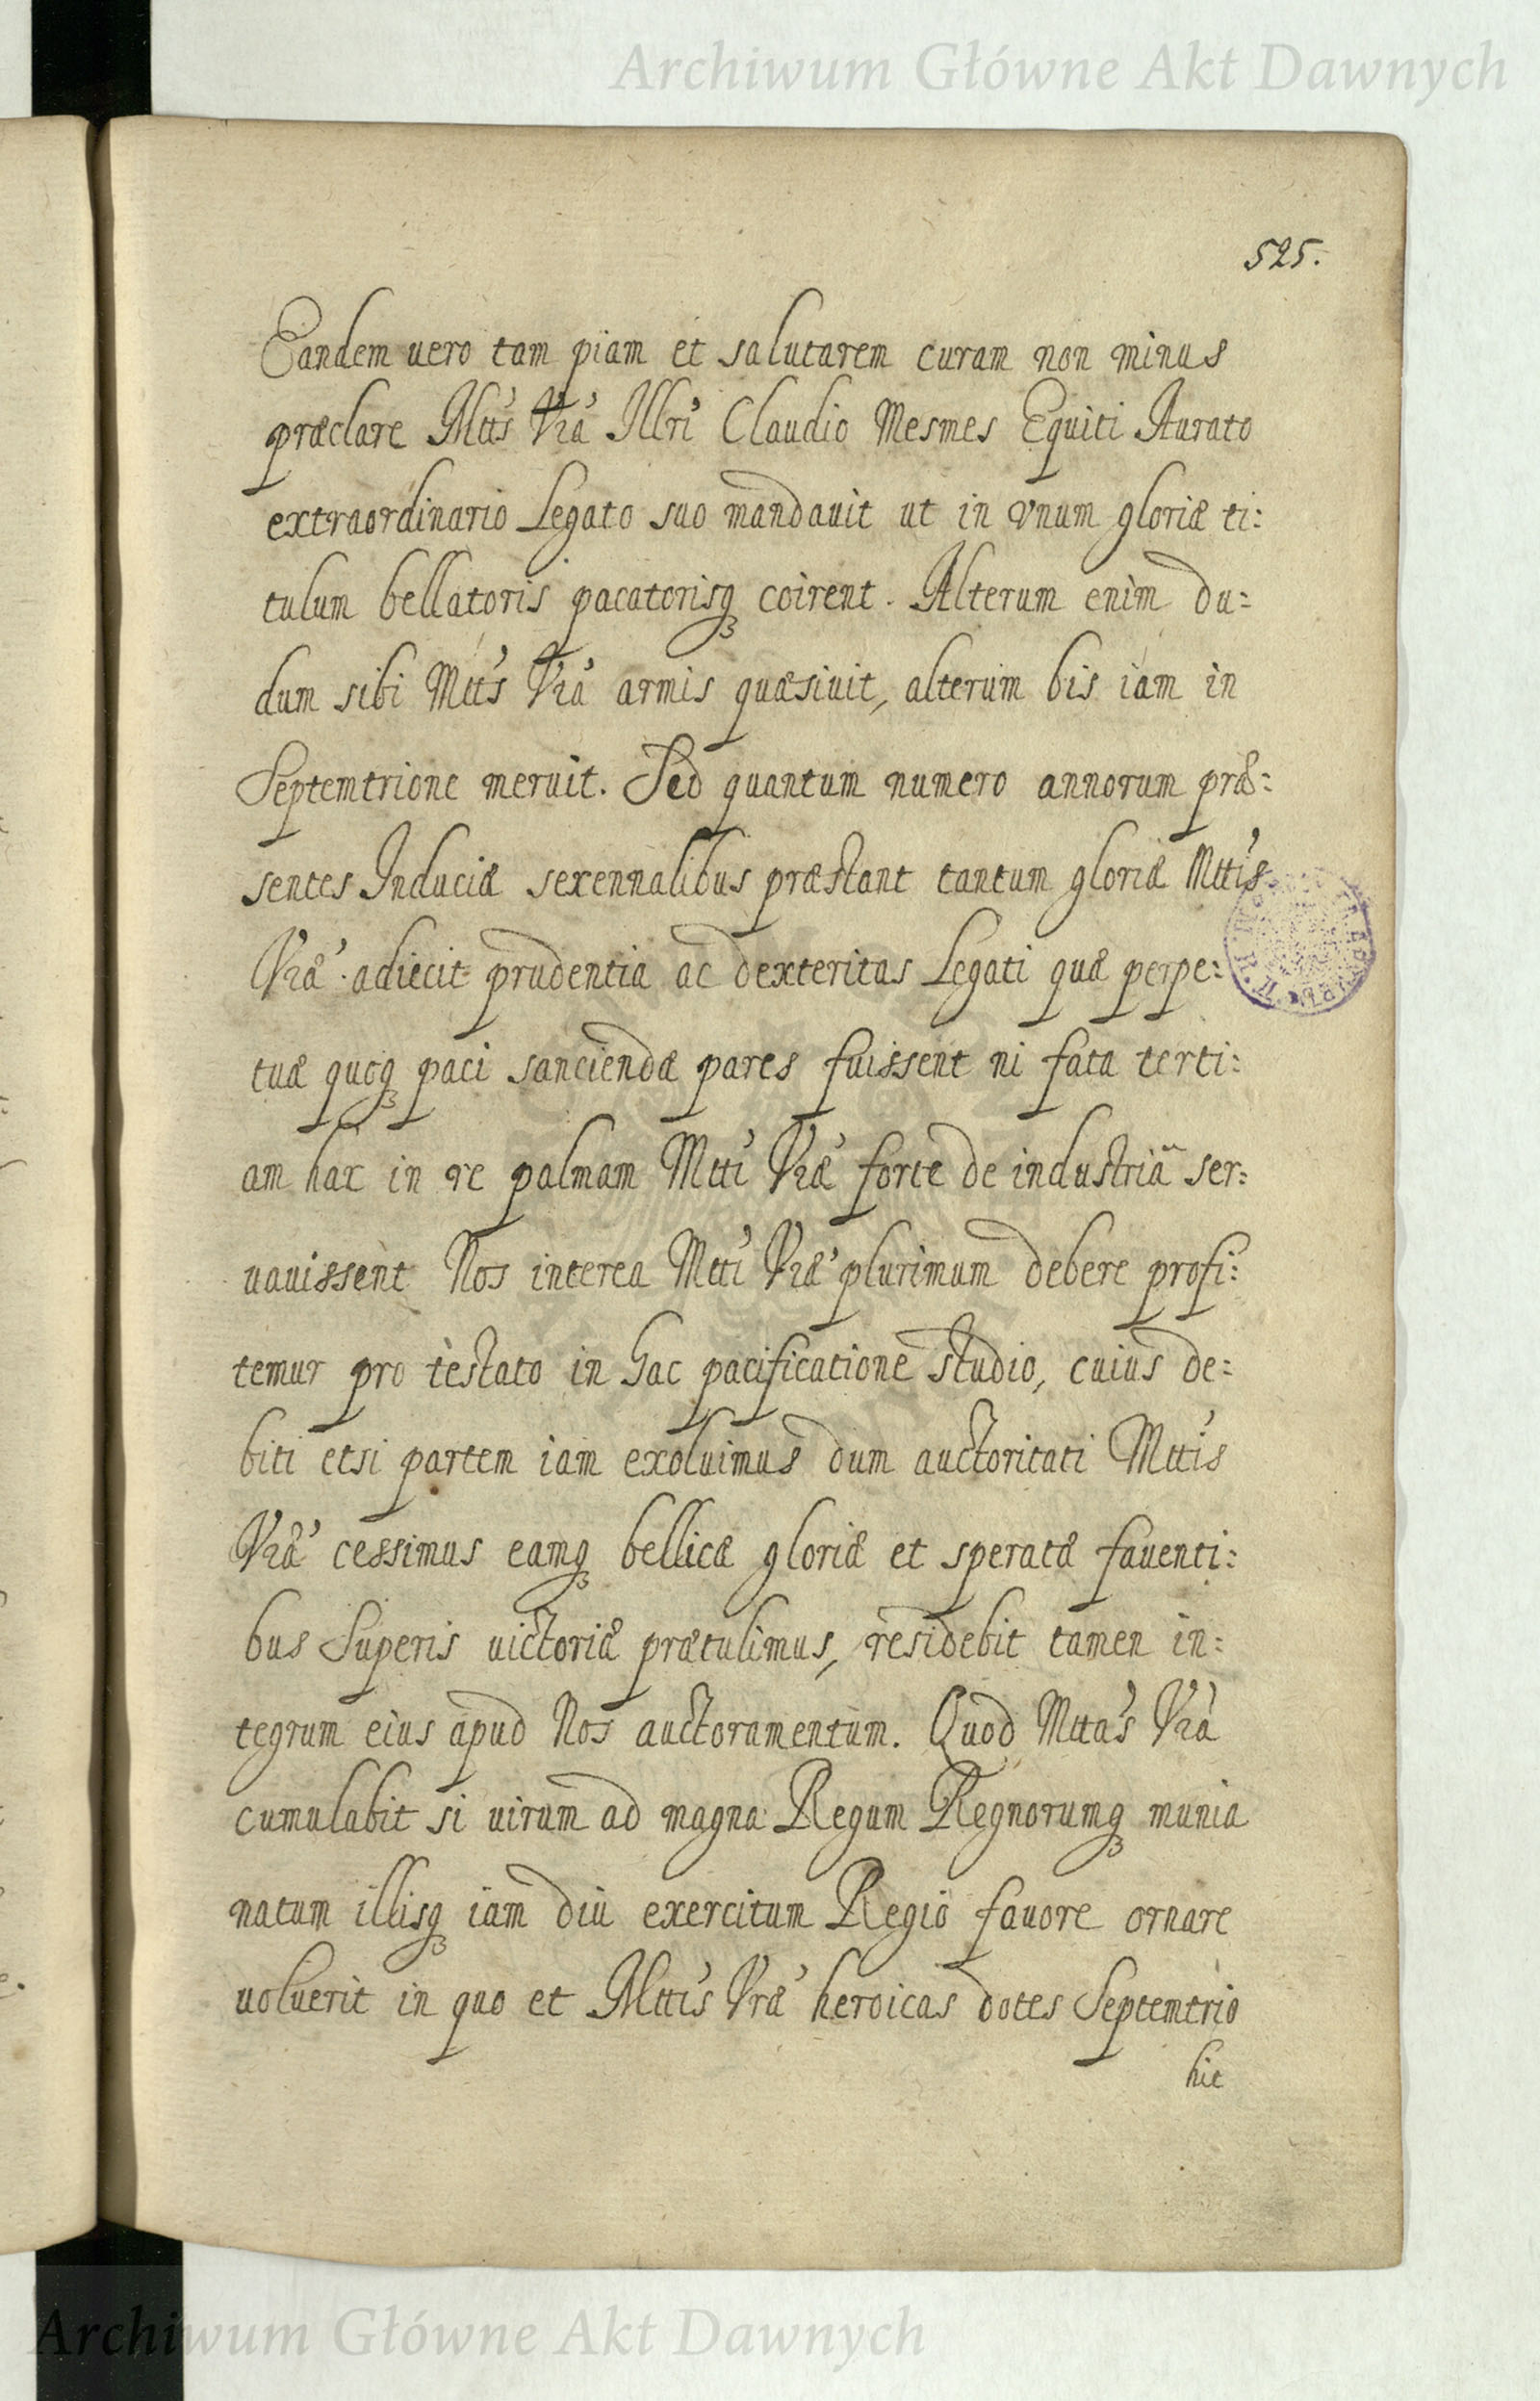 Archiwum Główne Akt Dawnych
525.
Eandem uero tam piam et salutarem curam non minus
præclare Mtts Vra Illri Claudio Mesmes Equiti Aurato
extraordinario Legato suo mandauit ut in vnum gloriæ ti:
tulum bellatoris pacatorisq3 coirent. Alterum enim du:
dum sibi Mtts Vra armis quæsiuit, alterum bis iam in
Septemtrione meruit. Sed quantum numero annorum præ:
sentes Induciæ sexennalibus præstant tantum gloriæ Mttis
Vræ adiecit prudentia ac dexteritas Legati quæ perpe:
tuæ quoq3 paci sanciendæ pares fuissent ni fata terti:
am hac in re palmam Mtti Vræ forte de industriâ ser:
uauissent Nos interea Mtti Vræ plurimum debere profi:
temur pro testato in hac pacificatione studio, cuius de:
biti etsi partem iam exoluimus dum auctoritati Mttis
Vræ cessimus eamq3 bellicæ gloriæ et speratæ fauenti:
bus Superis uictoriæ prætulimus, residebit tamen in:
tegrum eius apud Nos auctoramentum. Quod Mttas Vra
cumulabit si uirum ad magna Regum Regnorumq3 munia
natum illisq3 iam diu exercitum Regio fauore ornare
uoluerit in quo et Mttis Vræ heroicas dotes Septemtrio
hic
Archiwum Główne Akt Dawnych